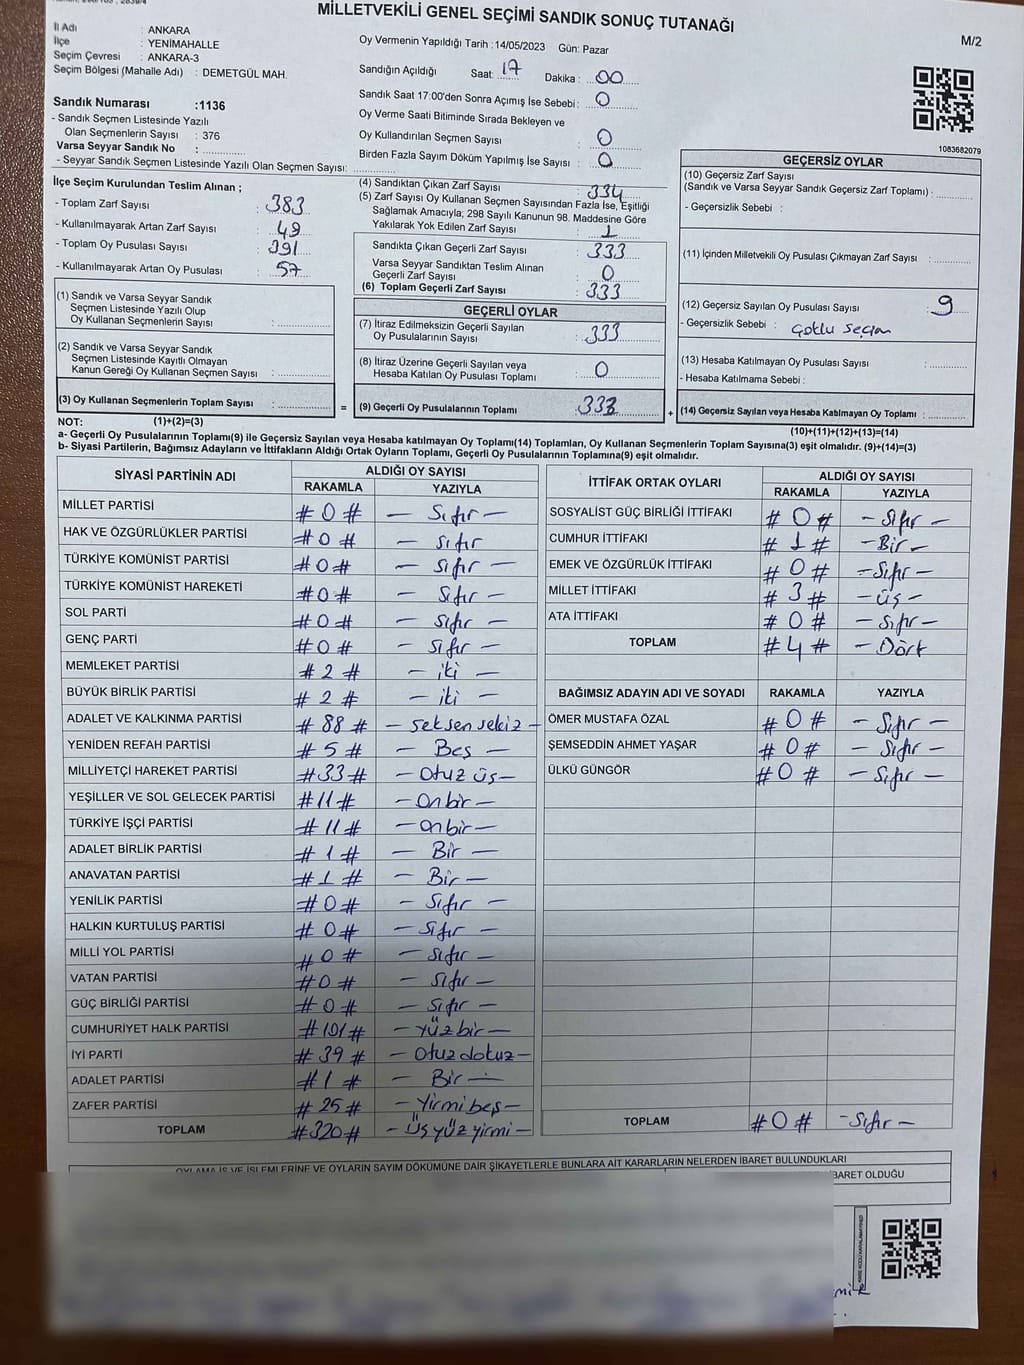 MİLLETVEKİLİ GENEL SEÇİMİ SANDIK SONUÇ TUTANAĞI
M/2
İl Adı : ANKARA
İlçe : YENİMAHALLE
Seçim Çevresi : ANKARA-3
Seçim Bölgesi (Mahalle Adı) : DEMETGÜL MAH.
Sandık Numarası :1136
- Sandık Seçmen Listesinde Yazılı
Olan Seçmenlerin Sayısı : 376
Varsa Seyyar Sandık No :
- Seyyar Sandık Seçmen Listesinde Yazılı Olan Seçmen Sayısı:
Oy Vermenin Yapıldığı Tarih :14/05/2023 Gün: Pazar
Sandığın Açıldığı Saat: 17 Dakika : 00
Sandık Saat 17:00'den Sonra Açımış İse Sebebi : 0
Oy Verme Saati Bitiminde Sırada Bekleyen ve
Oy Kullandırılan Seçmen Sayısı : 0
Birden Fazla Sayım Döküm Yapılmış İse Sayısı : 0
1083682079
İlçe Seçim Kurulundan Teslim Alınan ;
- Toplam Zarf Sayısı : 383
- Kullanılmayarak Artan Zarf Sayısı : 49
- Toplam Oy Pusulası Sayısı : 391
- Kullanılmayarak Artan Oy Pusulası : 57
(1) Sandık ve Varsa Seyyar Sandık
Seçmen Listesinde Yazılı Olup
Oy Kullanan Seçmenlerin Sayısı :
(2) Sandık ve Varsa Seyyar Sandık
Seçmen Listesinde Kayıtlı Olmayan
Kanun Gereği Oy Kullanan Seçmen Sayısı :
(3) Oy Kullanan Seçmenlerin Toplam Sayısı :
(4) Sandıktan Çıkan Zarf Sayısı : 334
(5) Zarf Sayısı Oy Kullanan Seçmen Sayısından Fazla İse, Eşitliği
Sağlamak Amacıyla; 298 Sayılı Kanunun 98. Maddesine Göre
Yakılarak Yok Edilen Zarf Sayısı : 1
Sandıkta Çıkan Geçerli Zarf Sayısı : 333
Varsa Seyyar Sandıktan Teslim Alınan
Geçerli Zarf Sayısı : 0
(6) Toplam Geçerli Zarf Sayısı : 333
GEÇERLİ OYLAR
(7) İtiraz Edilmeksizin Geçerli Sayılan
Oy Pusulalarının Sayısı : 333
(8) İtiraz Üzerine Geçerli Sayılan veya
Hesaba Katılan Oy Pusulası Toplamı : 0
= (9) Geçerli Oy Pusulalarının Toplamı : 333 +
GEÇERSİZ OYLAR
(10) Geçersiz Zarf Sayısı
(Sandık ve Varsa Seyyar Sandık Geçersiz Zarf Toplamı) :
- Geçersizlik Sebebi :
(11) İçinden Milletvekili Oy Pusulası Çıkmayan Zarf Sayısı :
(12) Geçersiz Sayılan Oy Pusulası Sayısı : 9
- Geçersizlik Sebebi : çoklu seçim
(13) Hesaba Katılmayan Oy Pusulası Sayısı :
- Hesaba Katılmama Sebebi :
(14) Geçersiz Sayılan veya Hesaba Katılmayan Oy Toplamı :
NOT: (1)+(2)=(3) (10)+(11)+(12)+(13)=(14)
a- Geçerli Oy Pusulalarının Toplamı(9) ile Geçersiz Sayılan veya Hesaba katılmayan Oy Toplamı(14) Toplamları, Oy Kullanan Seçmenlerin Toplam Sayısına(3) eşit olmalıdır. (9)+(14)=(3)
b- Siyasi Partilerin, Bağımsız Adayların ve İttifakların Aldığı Ortak Oyların Toplamı, Geçerli Oy Pusulalarının Toplamına(9) eşit olmalıdır.
SİYASİ PARTİNİN ADI ALDIĞI OY SAYISI
RAKAMLA YAZIYLA
MİLLET PARTİSİ # 0 # - Sıfır -
HAK VE ÖZGÜRLÜKLER PARTİSİ # 0 # - Sıfır
TÜRKİYE KOMÜNİST PARTİSİ # 0 # - Sıfır -
TÜRKİYE KOMÜNİST HAREKETİ # 0 # - Sıfır -
SOL PARTİ # 0 # - Sıfır -
GENÇ PARTİ # 0 # - Sıfır -
MEMLEKET PARTİSİ # 2 # - iki -
BÜYÜK BİRLİK PARTİSİ # 2 # - iki -
ADALET VE KALKINMA PARTİSİ # 88 # - seksen sekiz -
YENİDEN REFAH PARTİSİ # 5 # - Beş -
MİLLİYETÇİ HAREKET PARTİSİ # 33 # - Otuz üç -
YEŞİLLER VE SOL GELECEK PARTİSİ # 11 # - Onbir -
TÜRKİYE İŞÇİ PARTİSİ # 11 # - onbir -
ADALET BİRLİK PARTİSİ # 1 # - Bir -
ANAVATAN PARTİSİ # 1 # - Bir -
YENİLİK PARTİSİ # 0 # - Sıfır -
HALKIN KURTULUŞ PARTİSİ # 0 # - Sıfır -
MİLLİ YOL PARTİSİ # 0 # - Sıfır -
VATAN PARTİSİ # 0 # - Sıfır -
GÜÇ BİRLİĞİ PARTİSİ # 0 # - Sıfır -
CUMHURİYET HALK PARTİSİ # 101 # - Yüz bir -
İYİ PARTİ # 39 # - Otuz dokuz -
ADALET PARTİSİ # 1 # - Bir -
ZAFER PARTİSİ # 25 # - Yirmi beş -
TOPLAM # 320 # - Üç yüz yirmi -
İTTİFAK ORTAK OYLARI ALDIĞI OY SAYISI
RAKAMLA YAZIYLA
SOSYALİST GÜÇ BİRLİĞİ İTTİFAKI # 0 # - Sıfır -
CUMHUR İTTİFAKI # 1 # - Bir -
EMEK VE ÖZGÜRLÜK İTTİFAKI # 0 # - Sıfır -
MİLLET İTTİFAKI # 3 # - üç -
ATA İTTİFAKI # 0 # - Sıfır -
TOPLAM # 4 # - Dört
BAĞIMSIZ ADAYIN ADI VE SOYADI RAKAMLA YAZIYLA
ÖMER MUSTAFA ÖZAL # 0 # - Sıfır -
ŞEMSEDDİN AHMET YAŞAR # 0 # - Sıfır -
ÜLKÜ GÜNGÖR # 0 # - Sıfır -
TOPLAM # 0 # - Sıfır -
OYLAMA İŞ VE İŞLEMLERİNE VE OYLARIN SAYIM DÖKÜMÜNE DAİR ŞİKAYETLERLE BUNLARA AİT KARARLARIN NELERDEN İBARET BULUNDUKLARI
İBARET OLDUĞU